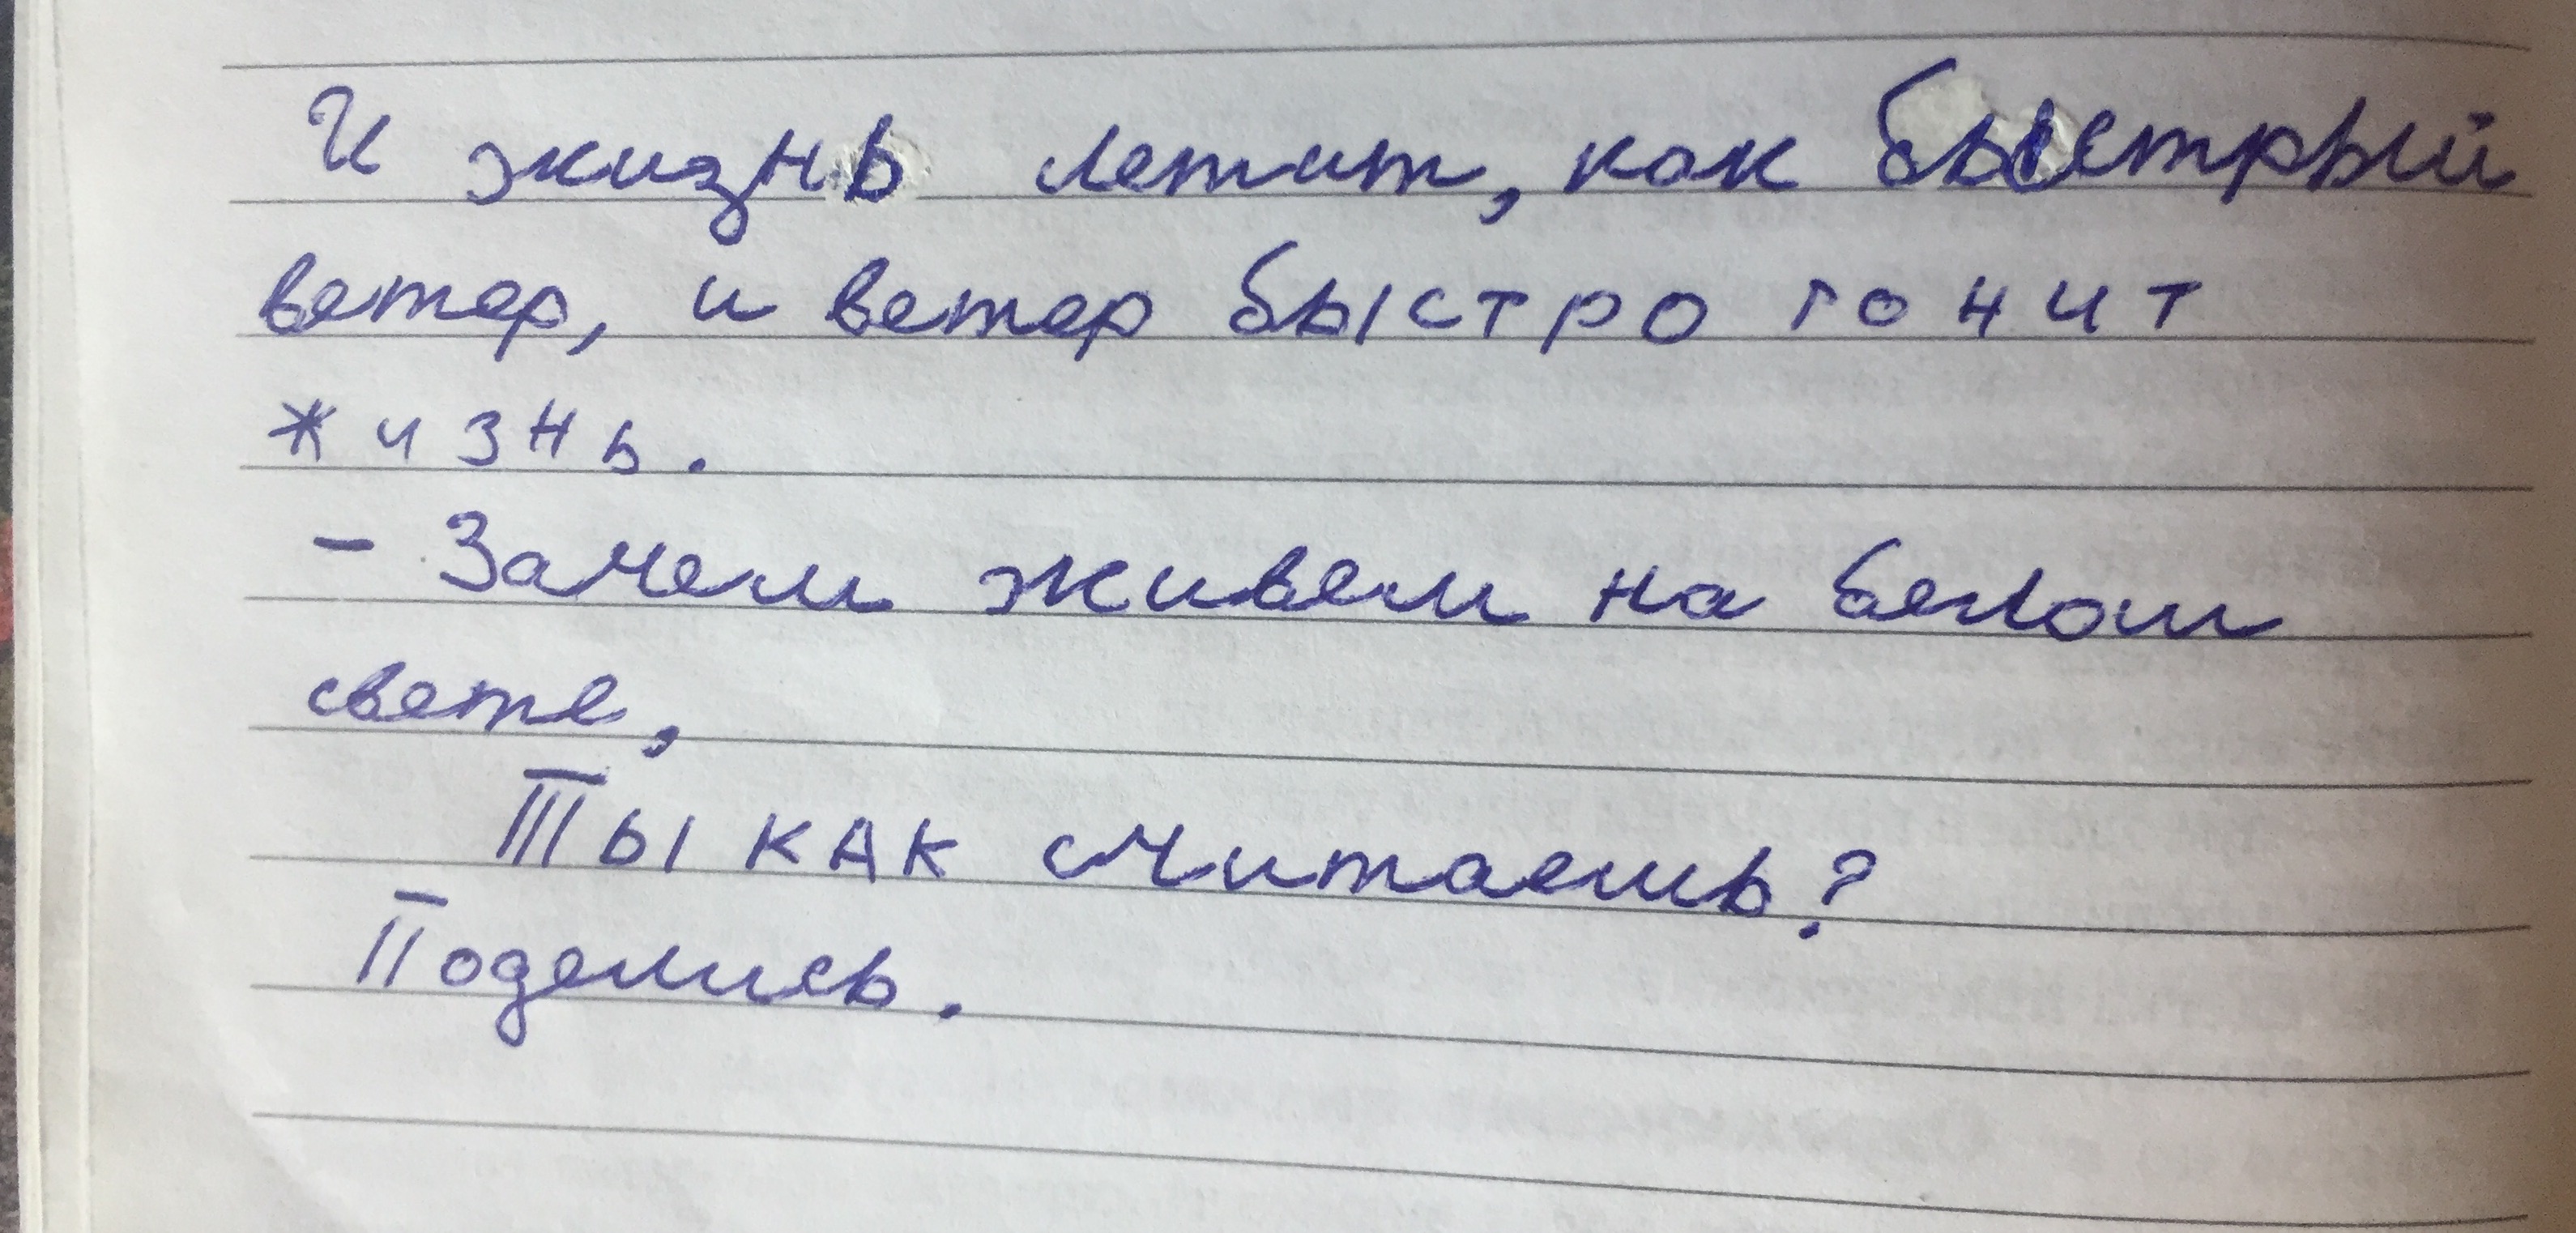 И жизнь летит, как быстрый
ветер, и ветер быстро гонит
жизнь.
- Зачем живем на белом
свете,
Ты как считаешь?
Поделись.